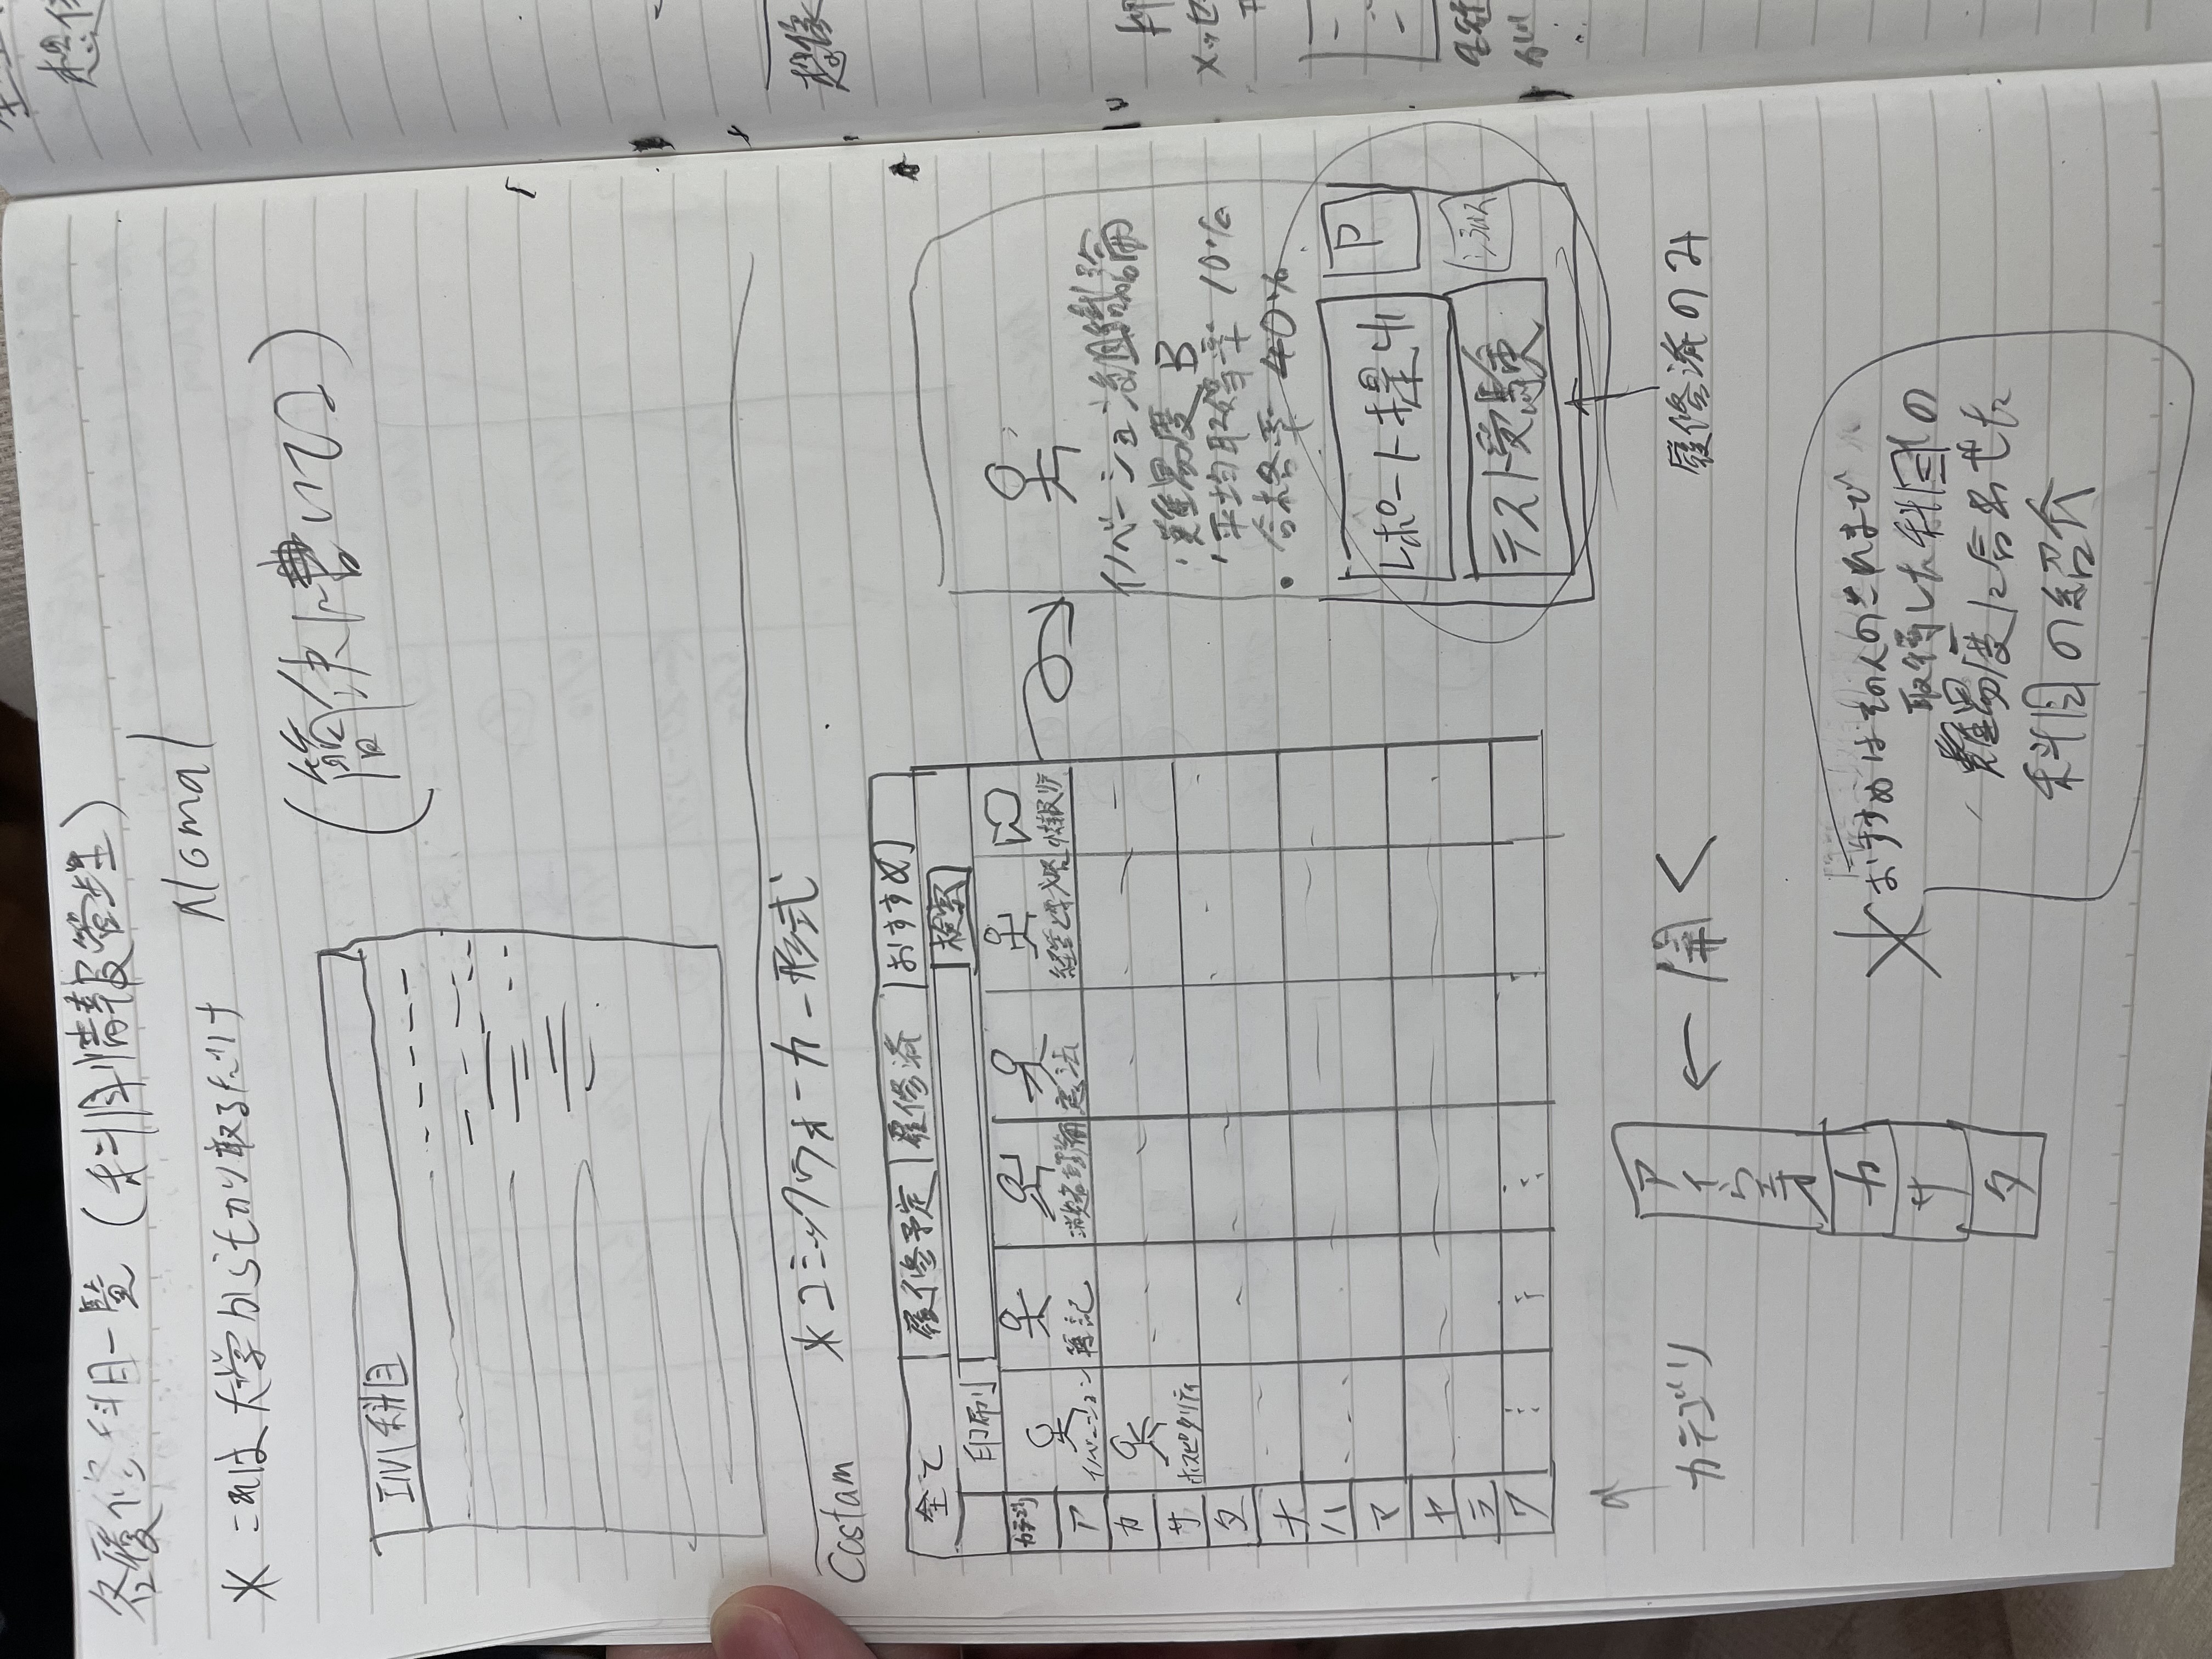 各履修科目一覧(科目情報管理)
* これは大学から切り取るだけ Nomal
(簡潔に書いてる)
科目
Costam *コミックウォーカー形式
全て 履修予定 履修済 おすすめ
印刷 検索
カテゴリ
ア イノベーション 簿記 憲法 経営と戦略 情報リテ
カ
サ ホスピタリティ
タ
ナ
ハ
マ
ヤ
ラ
ワ
イノベーション組織論
・難易度 B
・平均取得率 10%
・合格率 40%
レポート提出 P
テスト受験 シラバス
履修済のみ
カテゴリ
アイうエオ ← 開く
カ
サ
タ
* おすすめはその人のこれまで
取得した科目の
難易度に合わせた
科目の紹介
想像